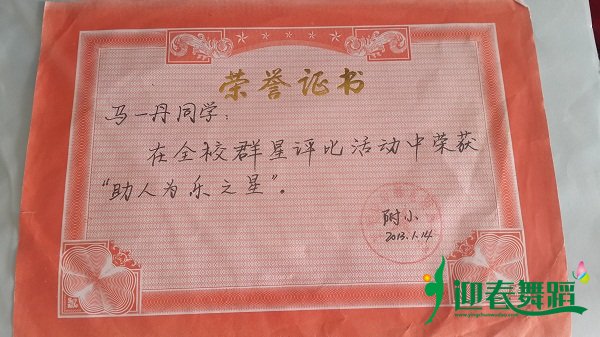 荣誉证书
马一丹同学：
在全校群星评比活动中荣获
“助人为乐之星”。
附小
2013.1.14
迎春舞蹈
www.yingchunwudao.com